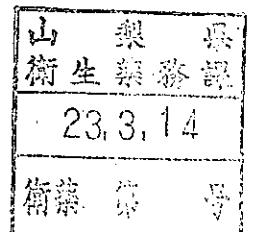 山梨県
衛生薬務課
23.3.14
衛薬 第 号